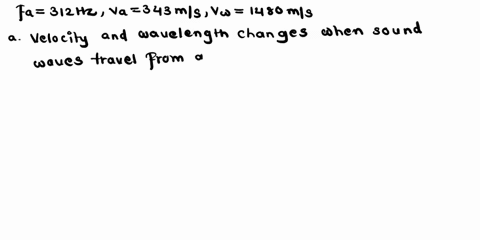 fa = 312 Hz, Va = 343 m/s, Vω = 1480 m/s
a. Velocity and wavelength changes when sound
waves travel from a